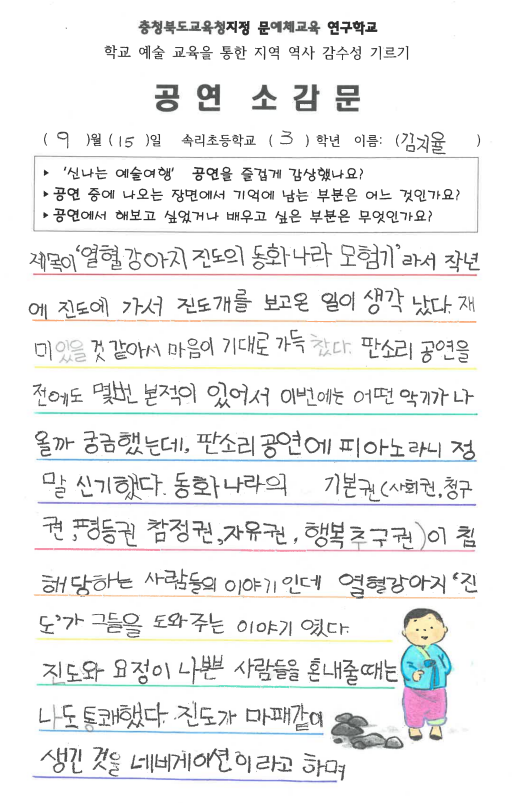 충청북도교육청지정 문예체교육 연구학교
학교 예술 교육을 통한 지역 역사 감수성 기르기
공 연 소 감 문
( 9 )월 ( 15 )일 속리초등학교 ( 3 ) 학년 이름: (김지율 )
▸ '신나는 예술여행' 공연을 즐겁게 감상했나요?
▸ 공연 중에 나오는 장면에서 기억에 남는 부분은 어느 것인가요?
▸ 공연에서 해보고 싶었거나 배우고 싶은 부분은 무엇인가요?
제목이 '열혈강아지 진도의 동화나라 모험기'라서 작년
에 진도에 가서 진도개를 보고온 일이 생각 났다. 재
미있을 것 같아서 마음이 기대로 가득 찼다. 판소리 공연을
전에도 몇번 본적이 있어서 이번에는 어떤 악기가 나
올까 궁금했는데, 판소리 공연에 피아노라니 정
말 신기했다. 동화나라의 기본권(사회권, 청구
권, 평등권 참정권, 자유권, 행복추구권)이 침
해당하는 사람들의 이야기인데 열혈강아지 '진
도'가 그들을 도와주는 이야기 였다.
진도와 요정이 나쁜 사람들을 혼내줄때는
나도 통쾌했다. 진도가 마패같이
생긴 것을 네비게이션이라고 하며